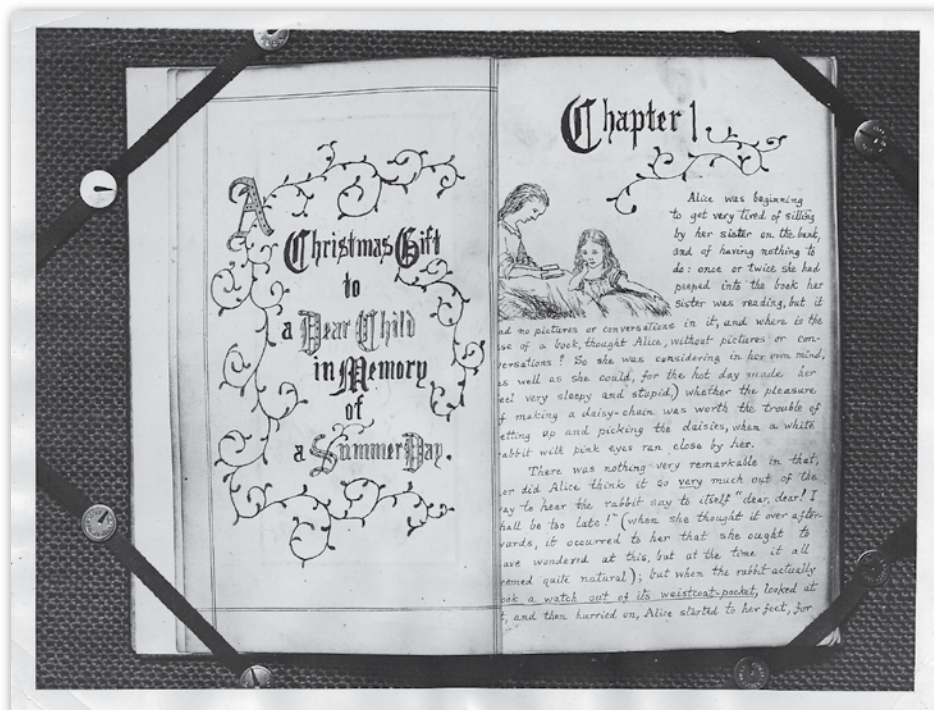 A
Christmas Gift
to
a Dear Child
in Memory
of
a Summer Day.
Chapter 1
Alice was beginning
to get very tired of sitting
by her sister on the bank,
and of having nothing to
do: once or twice she had
peeped into the book her
sister was reading, but it
ad no pictures or conversations in it, and where is the
se of a book, thought Alice, without pictures or con-
versations? So she was considering in her own mind,
as well as she could, for the hot day made her
eel very sleepy and stupid,) whether the pleasure
f making a daisy-chain was worth the trouble of
etting up and picking the daisies, when a white
abbit with pink eyes ran close by her.
There was nothing very remarkable in that,
or did Alice think it so very much out of the
ay to hear the rabbit say to itself "dear, dear! I
hall be too late!" (when she thought it over after-
wards, it occurred to her that she ought to
ave wondered at this, but at the time it all
eemed quite natural); but when the rabbit actually
ook a watch out of its waistcoat-pocket, looked at
t, and then hurried on, Alice started to her feet, for